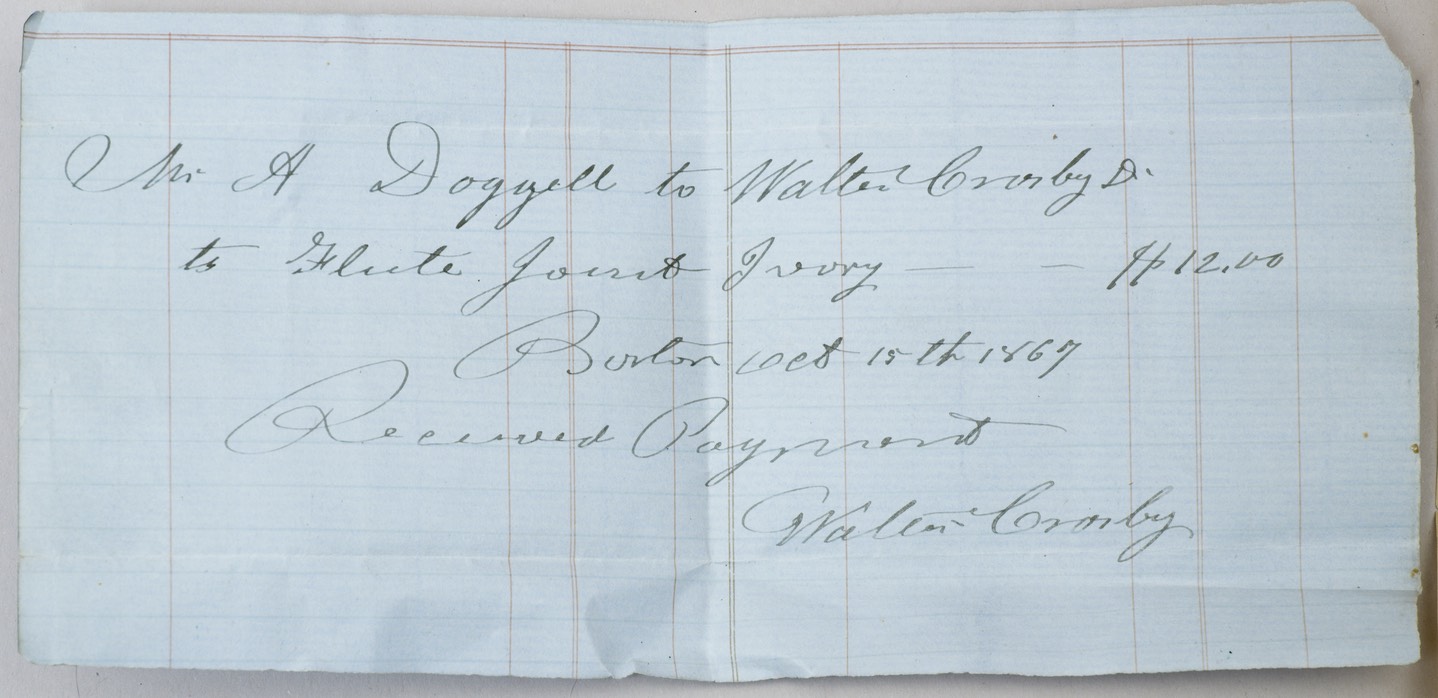 Mr A Doggett to Walter Crosby Dr
to Flute Joint Ivory — — $12.00
Boston Oct 15th 1867
Received Payment
Walter Crosby